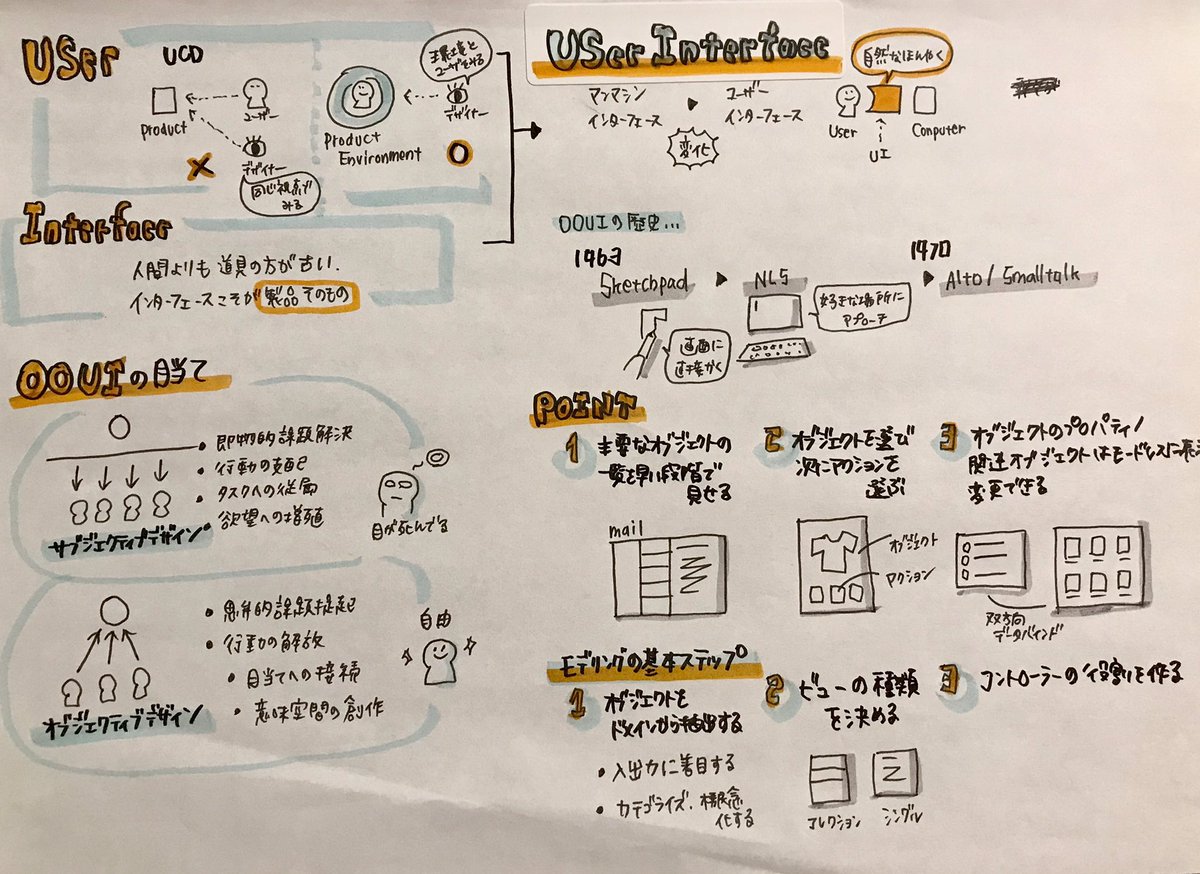 User
UCD
Product
ユーザー
デザイナー
同じ視点で
みる
環境と
ユーザをみる
デザイナー
Product
Environment
Interface
人間よりも道具の方が古い.
インターフェースこそが製品そのもの
User Interface
マンマシン
インターフェース
変化
ユーザー
インターフェース
自然なほんやく
User
UI
Conputer
OOUIの歴史...
1963
Sketchpad
画面に
直接かく
NLS
好きな場所に
アプローチ
1970
Alto/Smalltalk
OOUIの目当て
・即物的課題解決
・行動の支配
・タスクへの従属
・欲望への増殖
サブジェクティブデザイン
目が死んでる
・思弁的課題提起
・行動の解放
・目当てへの接続
・意味空間の創作
オブジェクティブデザイン
自由
POINT
1 主要なオブジェクトの
一覧を早い段階で
見せる
mail
2 オブジェクトを選び
次にアクションを
選ぶ
オブジェクト
アクション
3 オブジェクトのプロパティ/
関連オブジェクトはモードレスに表示
変更できる
双方向
データバインド
モデリングの基本ステップ
1 オブジェクトを
ドメインから抽出する
・入出力に着目する
・カテゴライズ、概念
化する
2 ビューの種類
を決める
コレクション
シングル
3 コントローラーの役割を作る